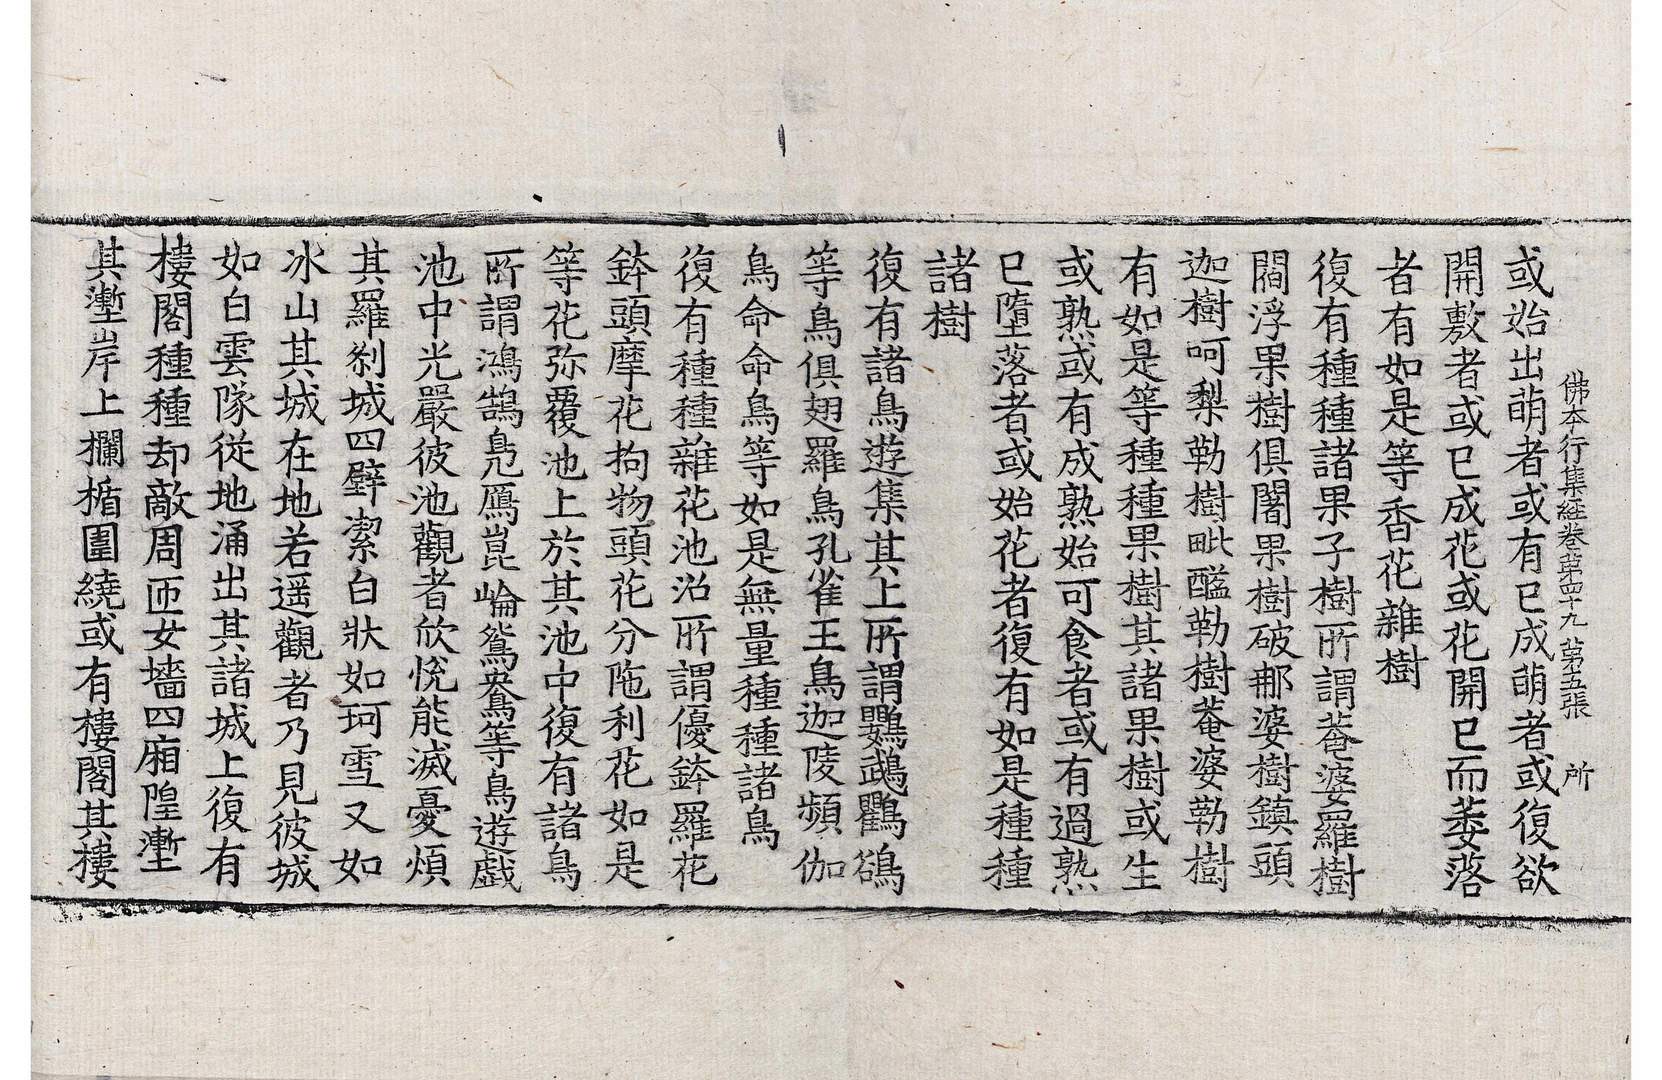 佛本行集經卷苐四十九 苐五張 所
或始出萌者或有已成萌者或復欲
開敷者或已成花或花開已而萎落
者有如是等香花雜樹
復有種種諸果子樹所謂菴婆羅樹
閻浮果樹俱闍果樹破那婆樹鎮頭
迦樹呵梨勒樹毗醯勒樹菴婆勒樹
有如是等種種果樹其諸果樹或生
或熟或有成熟始可食者或有過熟
已墮落者或始花者復有如是種種
諸樹
復有諸鳥遊集其上所謂鸚鵡鸜鵒
等鳥俱翅羅鳥孔雀王鳥迦陵頻伽
鳥命命鳥等如是無量種種諸鳥
復有種種雜花池沼所謂優鉢羅花
鉢頭摩花拘物頭花分陁利花如是
等花弥覆池上於其池中復有諸鳥
所謂鴻鵠鳧鴈崑崘鴛鴦等鳥遊戲
池中光嚴彼池觀者欣悅能滅憂煩
其羅剎城四壁潔白狀如珂雪又如
冰山其城在地若遥觀者乃見彼城
如白雲隊從地涌出其諸城上復有
樓閣種種却敵周匝女墻四廂隍壍
其壍岸上欄楯圍繞或有樓閣其樓